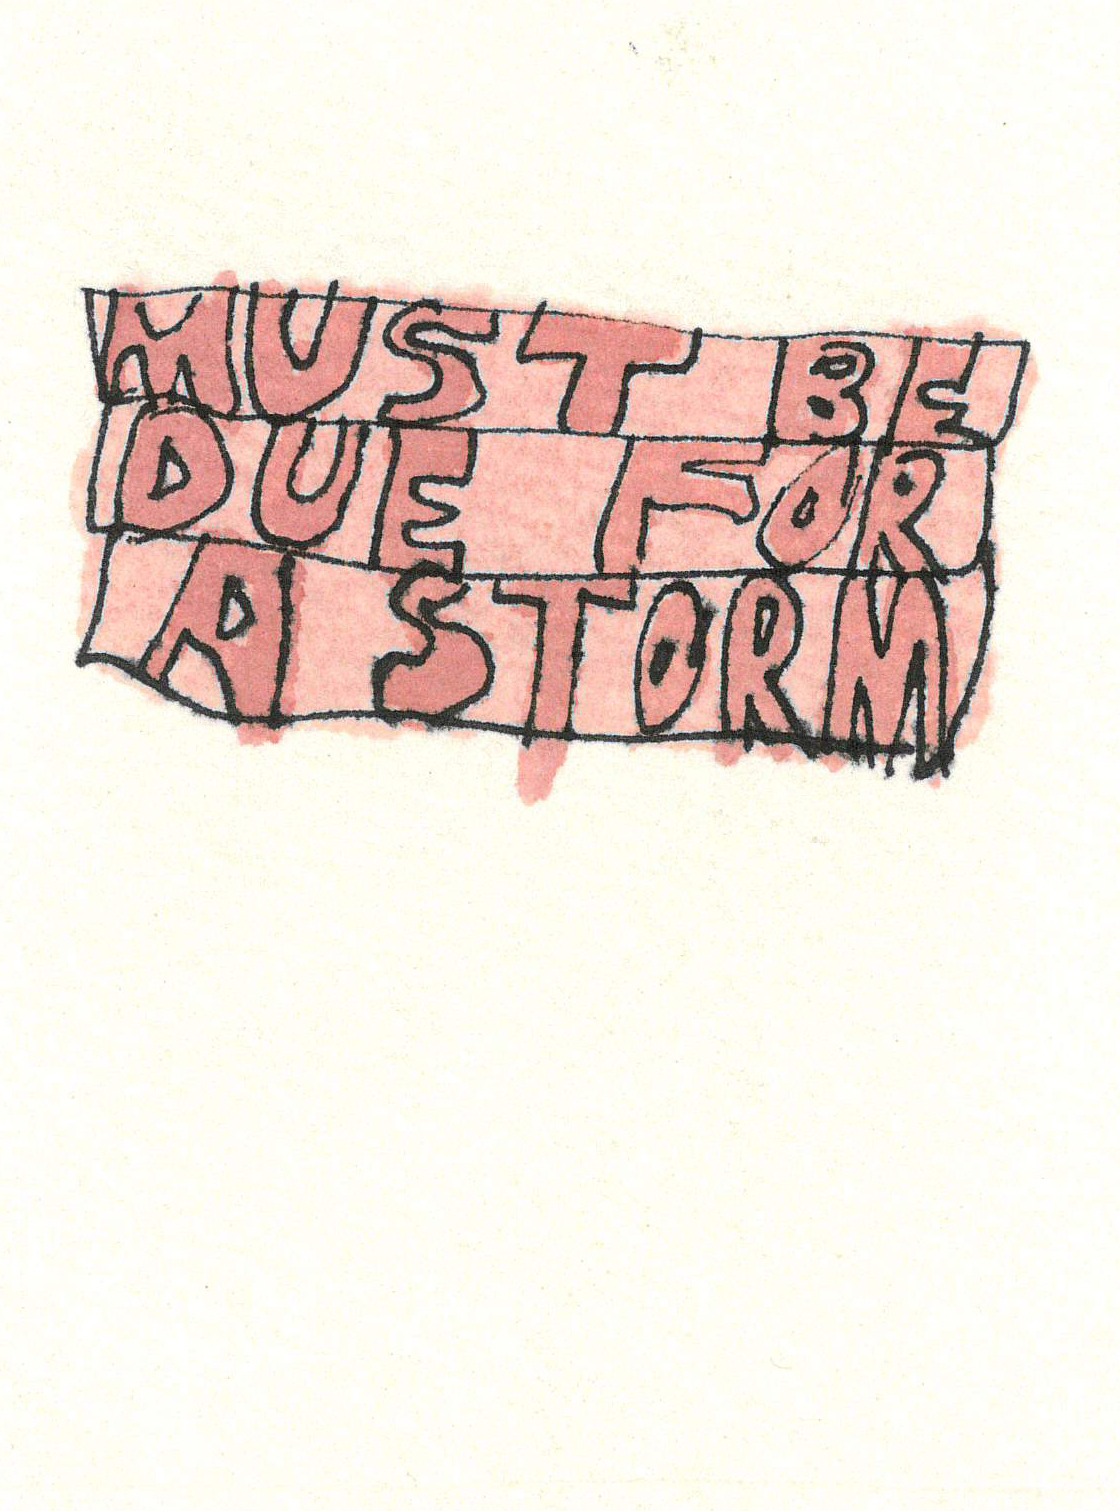 MUST BE
DUE FOR
A STORM